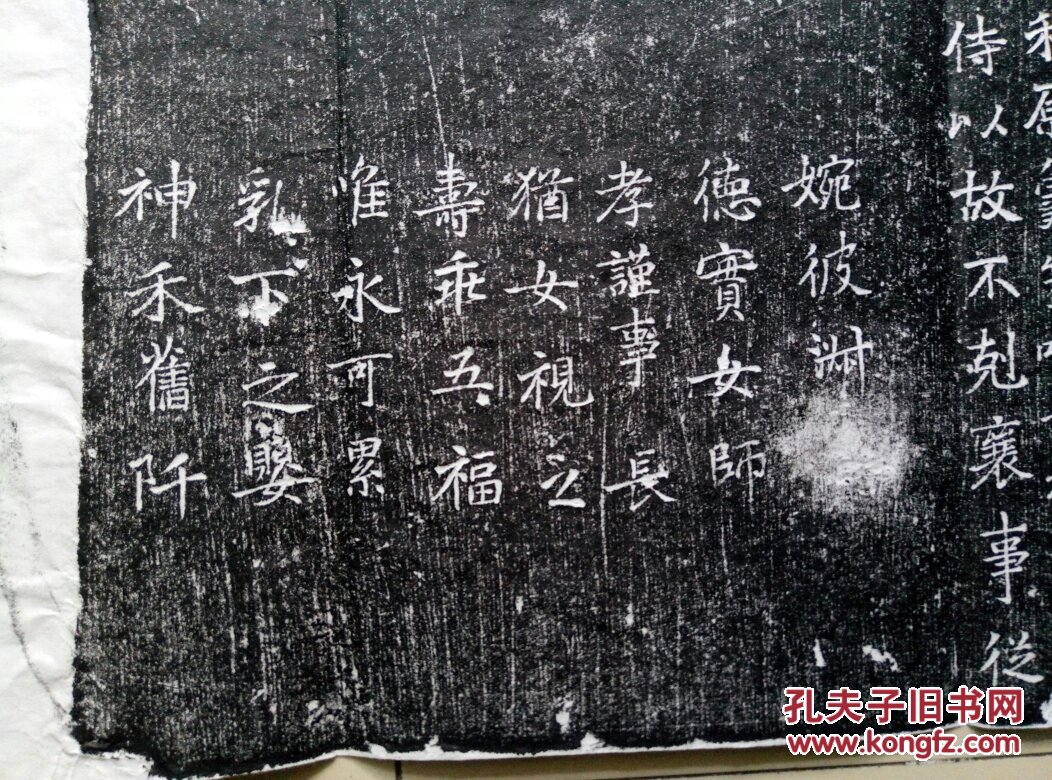 和原
侍以故不克襄事從
婉彼淑
德實女師
孝謹事長
猶女視之
壽乖五福
唯永可累
乳下之嬰
神禾舊阡
孔夫子旧书网
www.kongfz.com